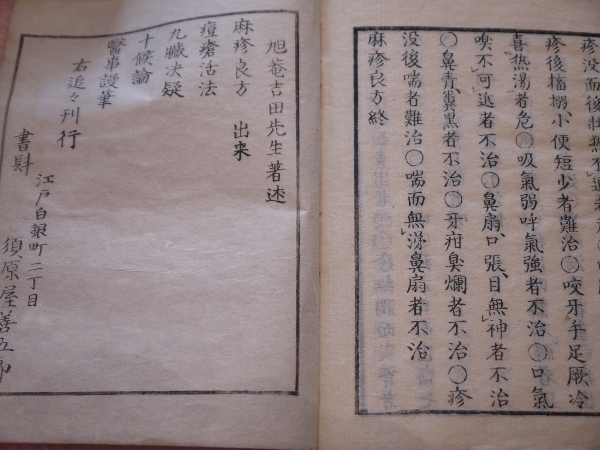 疹没而後壮熱不退者危〇
疹後搐搦小便短少者難治〇咬牙手足厥冷
喜熱湯者危〇吸氣弱呼氣強者不治〇口氣
嗅不可近者不治〇鼻扇口張目無神者不治
〇鼻青糞黒者不治〇牙疳臭爛者不治〇疹
没後喘者難治〇喘而無涕鼻扇者不治
麻疹良方終
旭菴吉田先生著述
麻疹良方 出来
痘瘡活法
九臓决疑
十候論
醫事謾筆
右追々刊行
書肆
江戸白銀町二丁目
須原屋善五郎